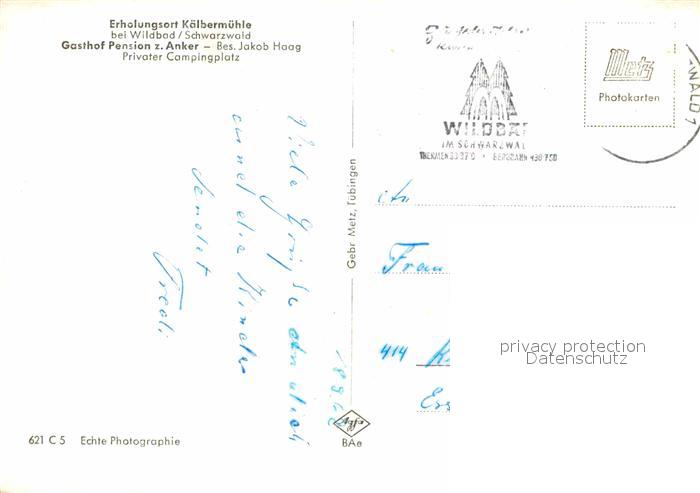 Erholungsort Kälbermühle
bei Wildbad / Schwarzwald
Gasthof Pension z. Anker – Bes. Jakob Haag
Privater Campingplatz
WILDBAD
IM SCHWARZWAL
THERMEN 33-37°C • BERGBAHN 430-750
WALD 1
Metz
Photokarten
Viele Grüße an dich
und die Kinder
sendet
Fredi
Gebr. Metz, Tübingen
An
Frau
414 K
privacy protection
Datenschutz
Agfa
BAe
621 C 5 Echte Photographie